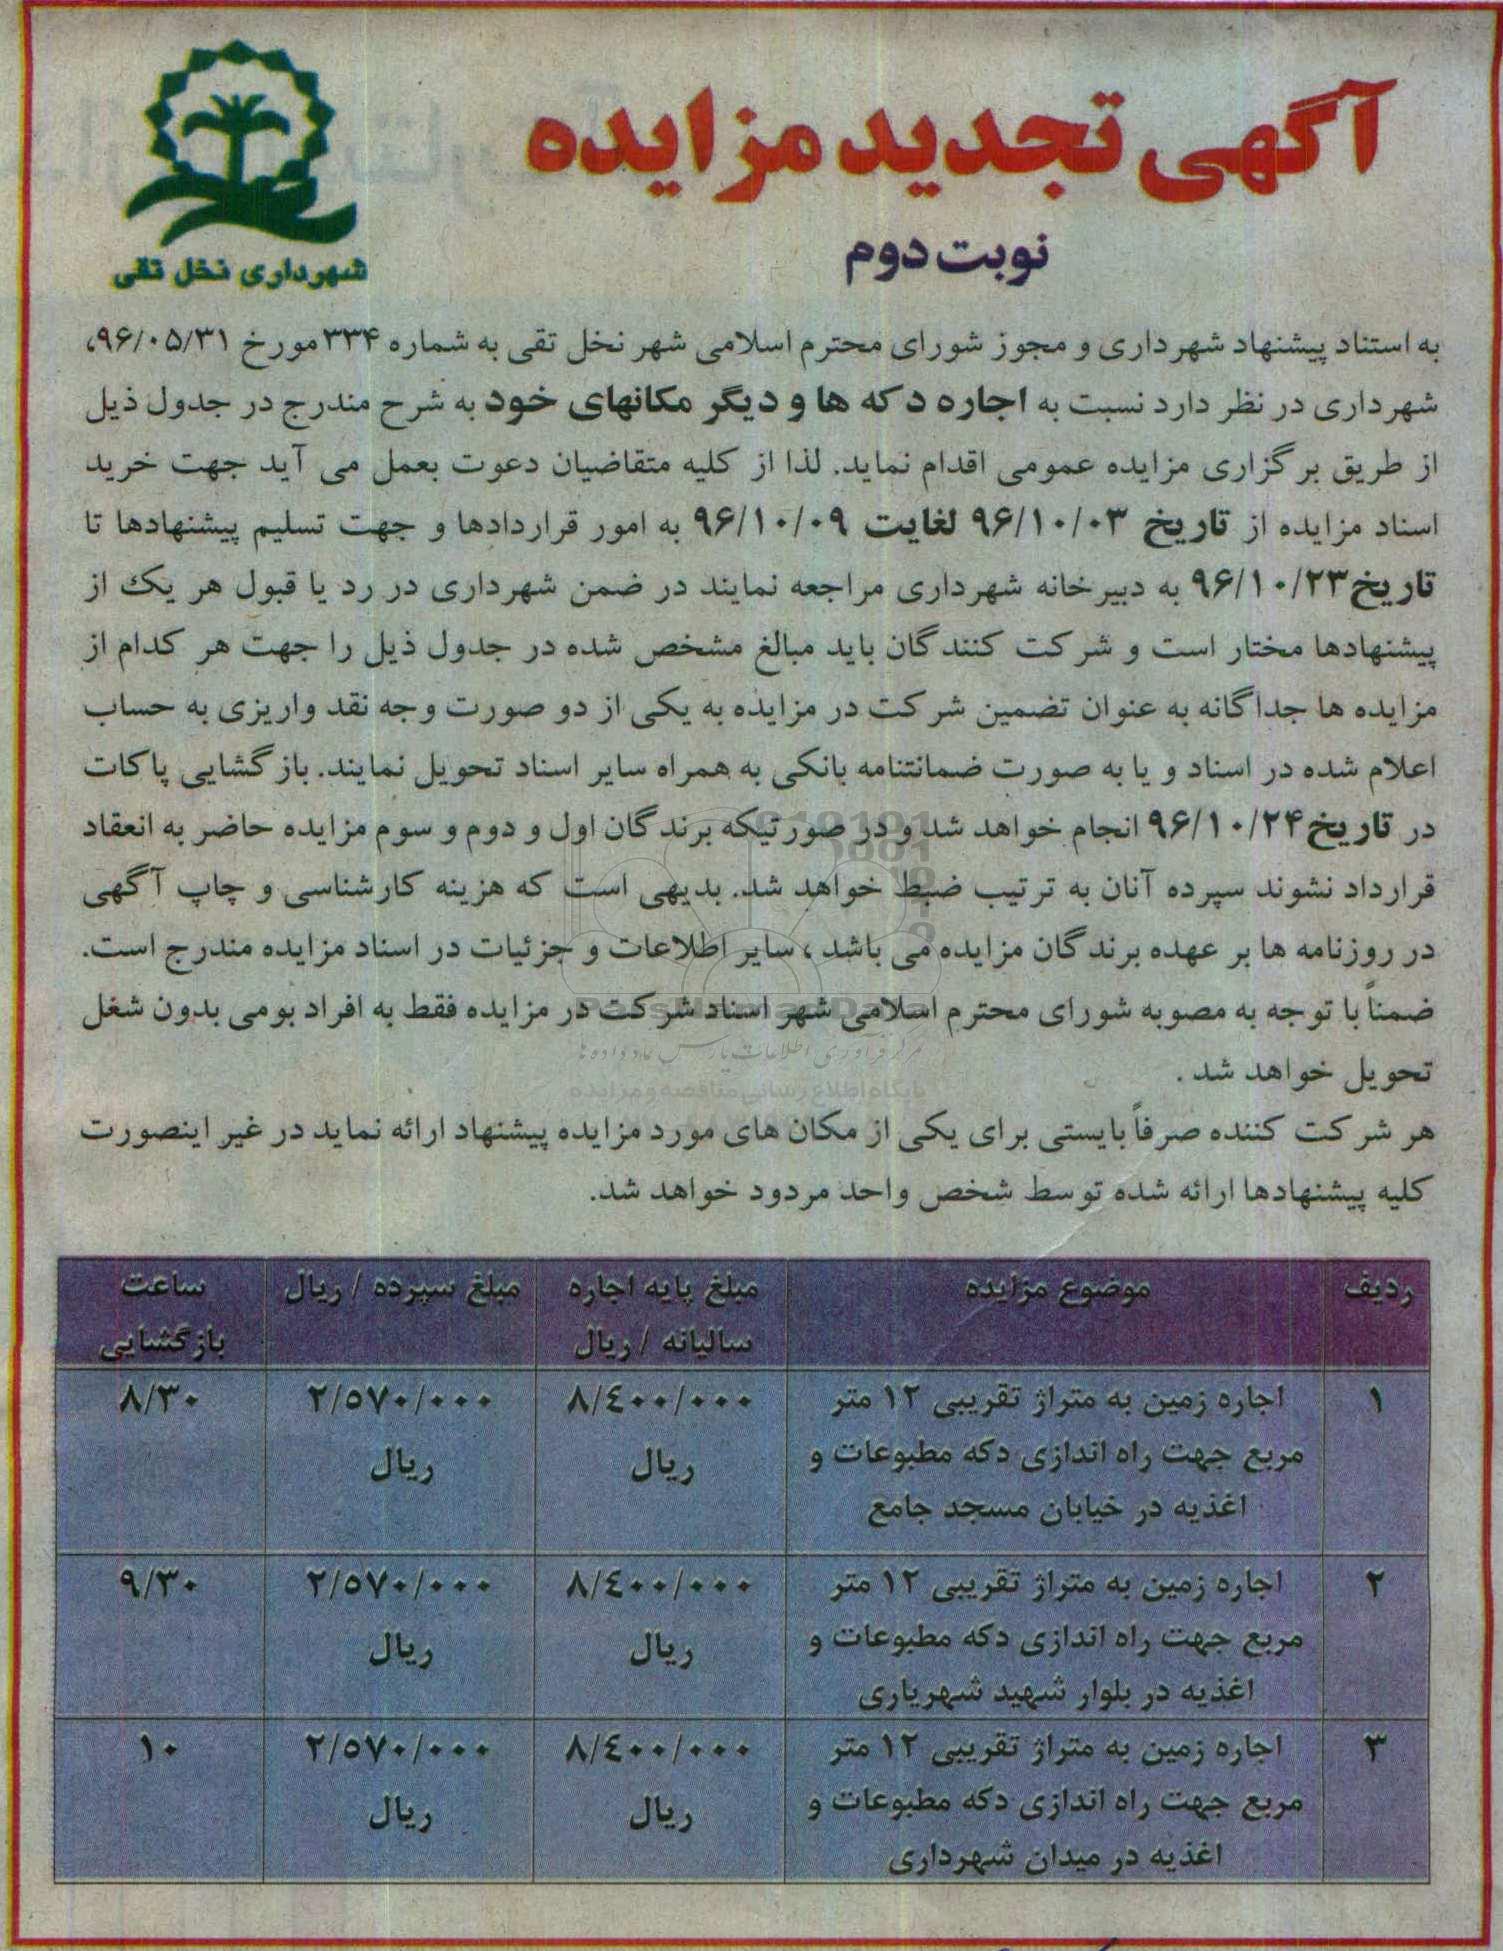 آگهی تجدید مزایده
نوبت دوم
شهرداری نخل تقی
به استناد پیشنهاد شهرداری و مجوز شورای محترم اسلامی شهر نخل تقی به شماره ۳۳۴ مورخ ۹۶/۰۵/۳۱،
شهرداری در نظر دارد نسبت به اجاره دکه ها و دیگر مکانهای خود به شرح مندرج در جدول ذیل
از طریق برگزاری مزایده عمومی اقدام نماید. لذا از کلیه متقاضیان دعوت بعمل می آید جهت خرید
اسناد مزایده از تاریخ ۹۶/۱۰/۰۳ لغایت ۹۶/۱۰/۰۹ به امور قراردادها و جهت تسلیم پیشنهادها تا
تاریخ ۹۶/۱۰/۲۳ به دبیرخانه شهرداری مراجعه نمایند در ضمن شهرداری در رد یا قبول هر یک از
پیشنهادها مختار است و شرکت کنندگان باید مبالغ مشخص شده در جدول ذیل را جهت هر کدام از
مزایده ها جداگانه به عنوان تضمین شرکت در مزایده به یکی از دو صورت وجه نقد واریزی به حساب
اعلام شده در اسناد و یا به صورت ضمانتنامه بانکی به همراه سایر اسناد تحویل نمایند. بازگشایی پاکات
در تاریخ ۹۶/۱۰/۲۴ انجام خواهد شد و در صورتیکه برندگان اول و دوم و سوم مزایده حاضر به انعقاد
قرارداد نشوند سپرده آنان به ترتیب ضبط خواهد شد. بدیهی است که هزینه کارشناسی و چاپ آگهی
در روزنامه ها بر عهده برندگان مزایده می باشد ، سایر اطلاعات و جزئیات در اسناد مزایده مندرج است.
ضمناً با توجه به مصوبه شورای محترم اسلامی شهر اسناد شرکت در مزایده فقط به افراد بومی بدون شغل
تحویل خواهد شد .
هر شرکت کننده صرفاً بایستی برای یکی از مکان های مورد مزایده پیشنهاد ارائه نماید در غیر اینصورت
کلیه پیشنهادها ارائه شده توسط شخص واحد مردود خواهد شد.
ردیف موضوع مزایده مبلغ پایه اجاره مبلغ سپرده / ریال ساعت
سالیانه / ریال بازگشایی
۱ اجاره زمین به متراژ تقریبی ۱۲ متر ۸/٤۰۰/۰۰۰ ۲/۵۷۰/۰۰۰ ۸/۳۰
مربع جهت راه اندازی دکه مطبوعات و ریال ریال
اغذیه در خیابان مسجد جامع
۲ اجاره زمین به متراژ تقریبی ۱۲ متر ۸/٤۰۰/۰۰۰ ۲/۵۷۰/۰۰۰ ۹/۳۰
مربع جهت راه اندازی دکه مطبوعات و ریال ریال
اغذیه در بلوار شهید شهریاری
۳ اجاره زمین به متراژ تقریبی ۱۲ متر ۸/٤۰۰/۰۰۰ ۲/۵۷۰/۰۰۰ ۱۰
مربع جهت راه اندازی دکه مطبوعات و ریال ریال
اغذیه در میدان شهرداری